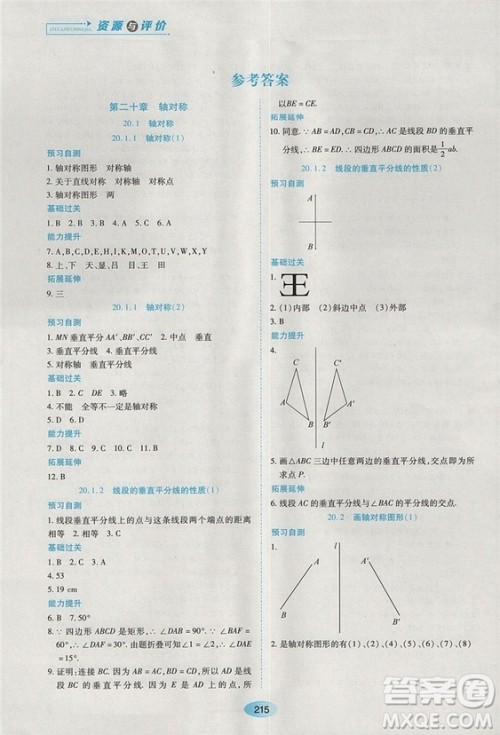 资源与评价
参考答案
第二十章 轴对称
20.1 轴对称
20.1.1 轴对称(1)
预习自测
1. 轴对称图形 对称轴
2. 关于直线对称 对称轴 对称点
3. 轴对称图形 两
基础过关
1. B 2. B 3. D 4. C 5. B 6. B
能力提升
7. A,B,C,D,E,H,I,K,M,O,T,U,V,W,X,Y
8. 上、下、天、显、吕、王、田
拓展延伸
9. 三
20.1.1 轴对称(2)
预习自测
1. MN 垂直平分 AA′、BB′、CC′ 2. 中点 垂直
3. 垂直平分线 4. 垂直平分线
5. 对称轴 垂直平分线
基础过关
1. B 2. C 3. D 4. 略
4. 不能 全等不一定是轴对称
能力提升
5. B 6. D 7. B
拓展延伸
8. D
20.1.2 线段的垂直平分线的性质(1)
预习自测
1. 线段垂直平分线上的点与这条线段两个端点的距离
相等
基础过关
1. B 2. C 3. D
4. 53
5. 19 cm
能力提升
6. B 7. 50°
8. ∵ 四边形 ABCD 是矩形,∴ ∠DAB=90°. ∵ ∠BAF=
60°,∴ ∠DAF=30°. 由题折叠可得,∠DAE=∠EAF
=15°.
9. 证明:连接 BC. 因为 AB=AC,BD=CD,所以 AD 是
线段 BC 的垂直平分线. 因为 E 是 AD 上的点,所
以 BE=CE.
拓展延伸
10. 同意. ∵ AB=AD,CB=CD,∴ AC 是线段 BD 的垂直平
分线,∴ BE=ED. ∴ 四边形 ABCD 的面积是1/2ab.
20.1.2 线段的垂直平分线的性质(2)
预习自测
A
B
基础过关
1. 王
2. (1)内部 (2)斜边中点 (3)外部
3. B
能力提升
4.
C C′
A A′
B B′
l
5. 画△ABC 三边中任意两边的垂直平分线,两线的交点即
求点 P.
拓展延伸
6. 线段 AC 的垂直平分线与∠ABC 的平分线的交点.
20.2 画轴对称图形(1)
预习自测
1.
A A′
B B′
l
2. 是轴对称图形的有(1)、(2)、(3)、(4)、(6)
215
答案圈
MXQE.COM